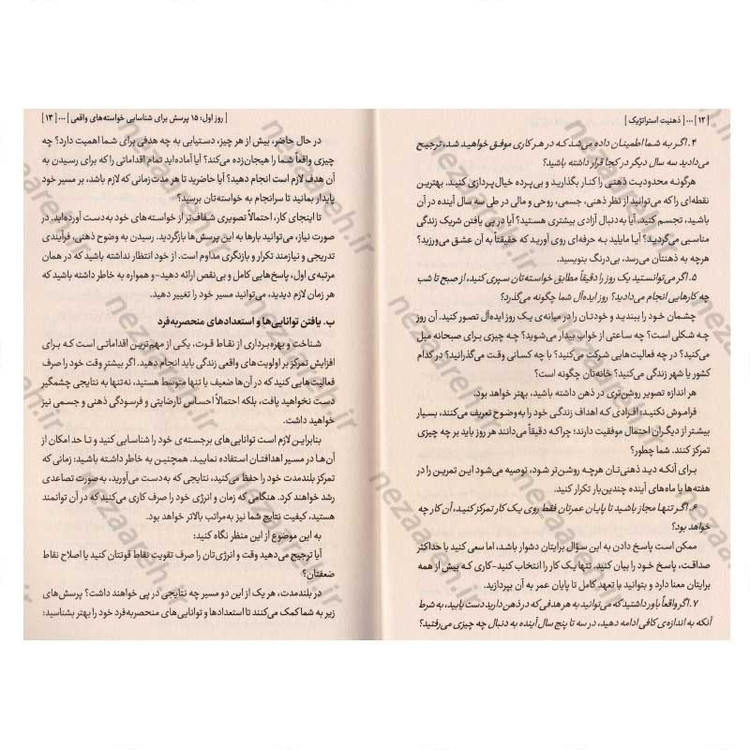 | ۱۲ | ... | ذهنیت استراتژیک |
۴. اگر به شما اطمینان داده می‌شد که در هر کاری موفق خواهید شد، ترجیح
می‌دادید سه سال دیگر در کجا قرار داشته باشید؟
هرگونه محدودیت ذهنی را کنار بگذارید و بی‌پرده خیال‌پردازی کنید. بهترین
نقطه‌ای را که می‌توانید از نظر ذهنی، جسمی، روحی و مالی در طی سه سال آینده در آن
باشید، تجسم کنید. آیا به‌دنبال آزادی بیشتری هستید؟ آیا در پی یافتن شریک زندگی
مناسبی می‌گردید؟ آیا مایلید به حرفه‌ای روی آورید که حقیقتاً به آن عشق می‌ورزید؟
هرچه به ذهنتان می‌رسد، بی‌درنگ بنویسید.
۵. اگر می‌توانستید یک روز را دقیقاً مطابق خواسته‌تان سپری کنید، از صبح تا شب
چه کارهایی انجام می‌دادید؟ روز ایده‌آل شما چگونه می‌گذرد؟
چشمان خود را ببندید و خودتان را در میانه‌ی یک روز ایده‌آل تصور کنید. آن روز
چه شکلی است؟ چه ساعتی از خواب بیدار می‌شوید؟ چه چیزی برای صبحانه میل
می‌کنید؟ در چه فعالیت‌هایی شرکت می‌کنید؟ با چه کسانی وقت می‌گذرانید؟ در کدام
کشور یا شهر زندگی می‌کنید؟ خانه‌تان چگونه است؟
هر اندازه تصویر روشن‌تری در ذهن داشته باشید، بهتر خواهد بود.
فراموش نکنید: افرادی که اهداف زندگی خود را به‌وضوح تعریف می‌کنند، بسیار
بیشتر از دیگران احتمال موفقیت دارند؛ چراکه دقیقاً می‌دانند هر روز باید بر چه چیزی
تمرکز کنند. شما چطور؟
برای آنکه دید ذهنی‌تان هرچه روشن‌تر شود، توصیه می‌شود این تمرین را در
هفته‌ها یا ماه‌های آینده چندین‌بار تکرار کنید.
۶. اگر تنها مجاز باشید تا پایان عمرتان فقط روی یک کار تمرکز کنید، آن کار چه
خواهد بود؟
ممکن است پاسخ دادن به این سؤال برایتان دشوار باشد، اما سعی کنید با حداکثر
صداقت، پاسخ خود را بیان کنید. تنها یک کار را انتخاب کنید-کاری که بیش از همه
برایتان معنا دارد و بتوانید با تعهد کامل تا پایان عمر به آن بپردازید.
۷. اگر واقعاً باور داشتید که می‌توانید به هر هدفی که در ذهن دارید دست یابید، به شرط
آنکه به اندازه‌ی کافی ادامه دهید، در سه تا پنج سال آینده به دنبال چه چیزی می‌رفتید؟
| روز اول: ۱۵ پرسش برای شناسایی خواسته‌های واقعی | ... | ۱۳ |
در حال حاضر، بیش از هر چیز، دستیابی به چه هدفی برای شما اهمیت دارد؟ چه
چیزی واقعاً شما را هیجان‌زده می‌کند؟ آیا آماده‌اید تمام اقداماتی را که برای رسیدن به
آن هدف لازم است انجام دهید؟ آیا حاضرید تا هر مدت‌زمانی که لازم باشد، بر مسیر خود
پایدار بمانید تا سرانجام به خواسته‌تان برسید؟
تا اینجای کار، احتمالاً تصویری شفاف‌تر از خواسته‌های خود به‌دست آورده‌اید. در
صورت نیاز، می‌توانید بارها به این پرسش‌ها بازگردید. رسیدن به وضوح ذهنی، فرآیندی
تدریجی و نیازمند تکرار و بازنگری مداوم است. از خود انتظار نداشته باشید که در همان
مرتبه‌ی اول، پاسخ‌هایی کامل و بی‌نقص ارائه دهید-و همواره به خاطر داشته باشید که
هر زمان لازم دیدید، می‌توانید مسیر خود را تغییر دهید.
ب. یافتن توانایی‌ها و استعدادهای منحصربه‌فرد
شناخت و بهره‌برداری از نقاط قوت، یکی از مهم‌ترین اقداماتی است که برای
افزایش تمرکز بر اولویت‌های واقعی زندگی باید انجام دهید. اگر بیشتر وقت خود را صرف
فعالیت‌هایی کنید که در آن‌ها ضعیف یا تنها متوسط هستید، نه‌تنها به نتایجی چشمگیر
دست نخواهید یافت، بلکه احتمالاً احساس نارضایتی و فرسودگی ذهنی و جسمی نیز
خواهید داشت.
بنابراین لازم است توانایی‌های برجسته‌ی خود را شناسایی کنید و تا حد امکان از
آن‌ها در مسیر اهدافتان استفاده نمایید. همچنین به خاطر داشته باشید: زمانی که
تمرکز بلندمدت خود را حفظ می‌کنید، نتایجی که به‌دست می‌آورید، به‌صورت تصاعدی
رشد خواهند کرد. هنگامی که زمان و انرژی خود را صرف کاری می‌کنید که در آن توانمند
هستید، کیفیت نتایج شما نیز به‌مراتب بالاتر خواهد بود.
به این موضوع از این منظر نگاه کنید:
آیا ترجیح می‌دهید وقت و انرژی‌تان را صرف تقویت نقاط قوتتان کنید یا اصلاح نقاط
ضعفتان؟
در بلندمدت، هر یک از این دو مسیر چه نتایجی در پی خواهند داشت؟ پرسش‌های
زیر به شما کمک می‌کنند تا استعدادها و توانایی‌های منحصربه‌فرد خود را بهتر بشناسید:
nezaareh.ir